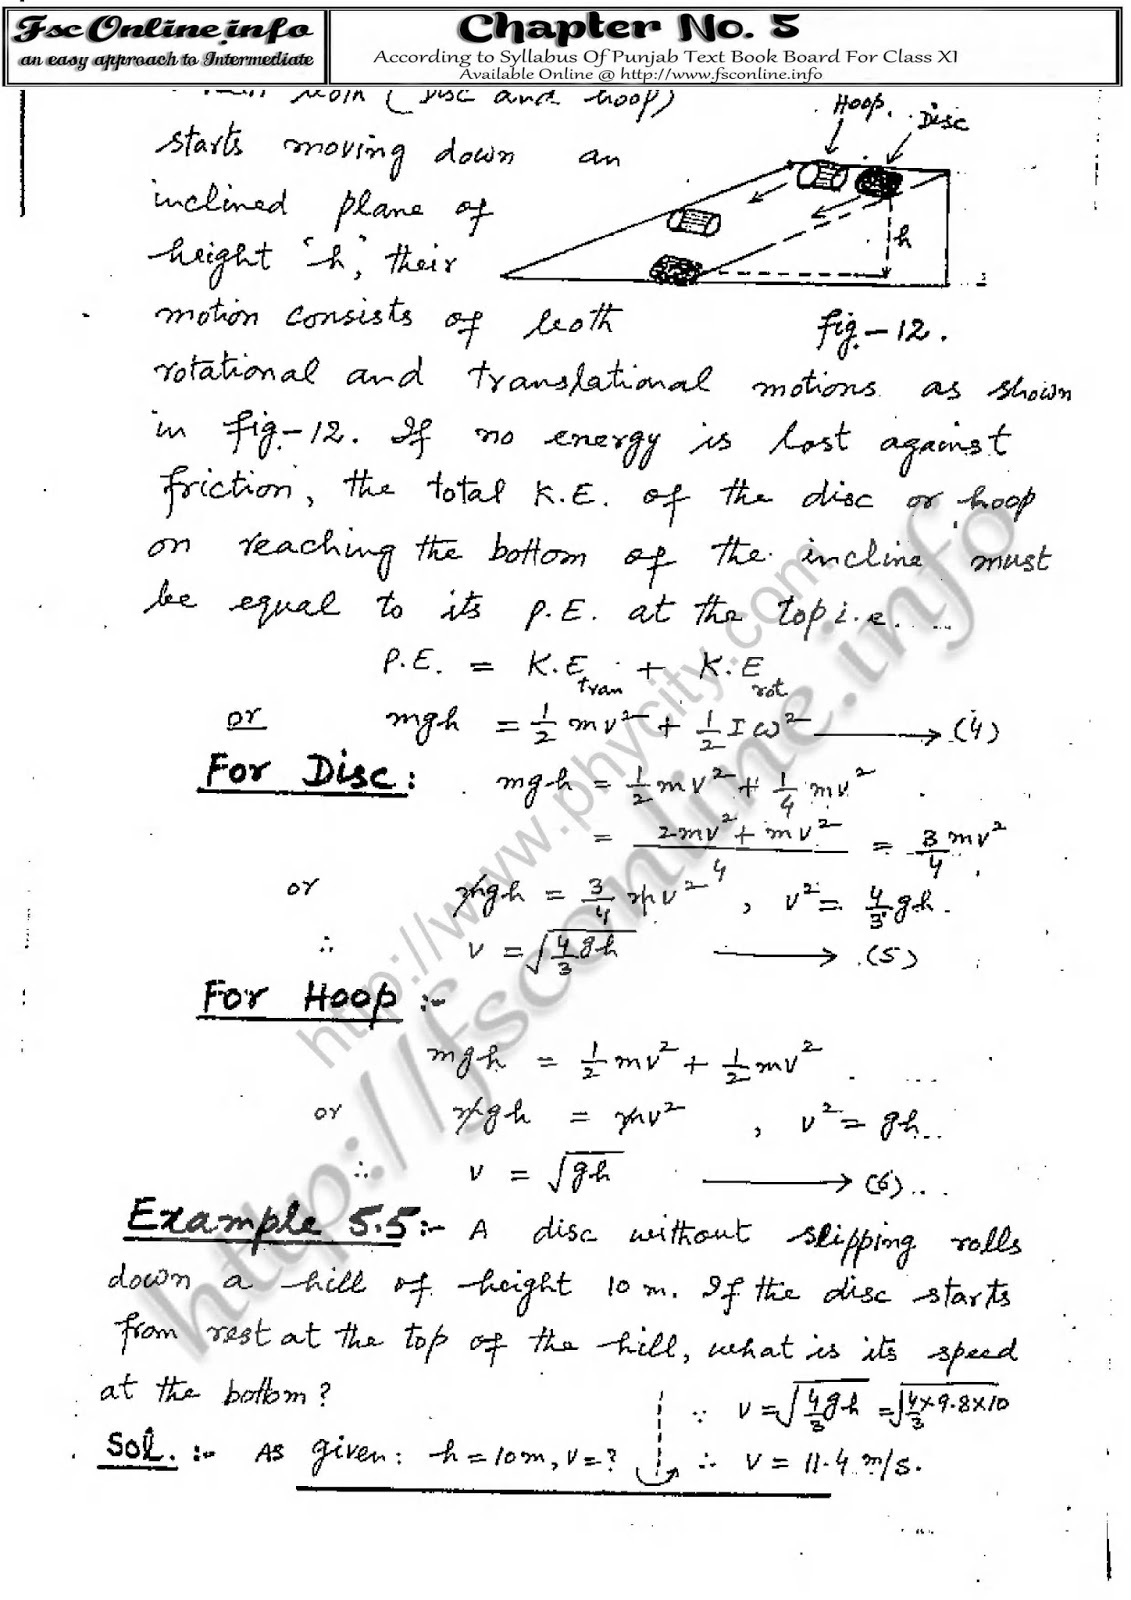 Fsc Online.info
an easy approach to Intermediate
Chapter No. 5
According to Syllabus Of Punjab Text Book Board For Class XI
Available Online @ http://www.fsconline.info
both (disc and hoop)
starts moving down an
inclined plane of
height 'h', their
motion consists of both
Hoop.
Disc
h
fig.-12.
rotational and translational motions as shown
in fig-12. If no energy is lost against
friction, the total K.E. of the disc or hoop
on reaching the bottom of the incline must
be equal to its P.E. at the top i.e.
P.E. = K.E_tran + K.E_rot
or mgh = 1/2 mv² + 1/2 Iω² → (4)
For Disc: mgh = 1/2 mv² + 1/4 mv²
= (2mv² + mv²)/4 = 3/4 mv²
or mgh = 3/4 mv², v² = 4/3 gh.
∴ v = √(4/3 gh) → (5)
For Hoop :-
mgh = 1/2 mv² + 1/2 mv²
or mgh = mv², v² = gh
∴ v = √gh → (6)
Example 5.5:- A disc without slipping rolls
down a hill of height 10 m. If the disc starts
from rest at the top of the hill, what is its speed
at the bottom?
Sol. :- As given: h = 10m, v = ?
∵ v = √(4/3 gh) = √(4/3 × 9.8 × 10)
∴ v = 11.4 m/s.
http://www.phycity.com
http://fsconline.info